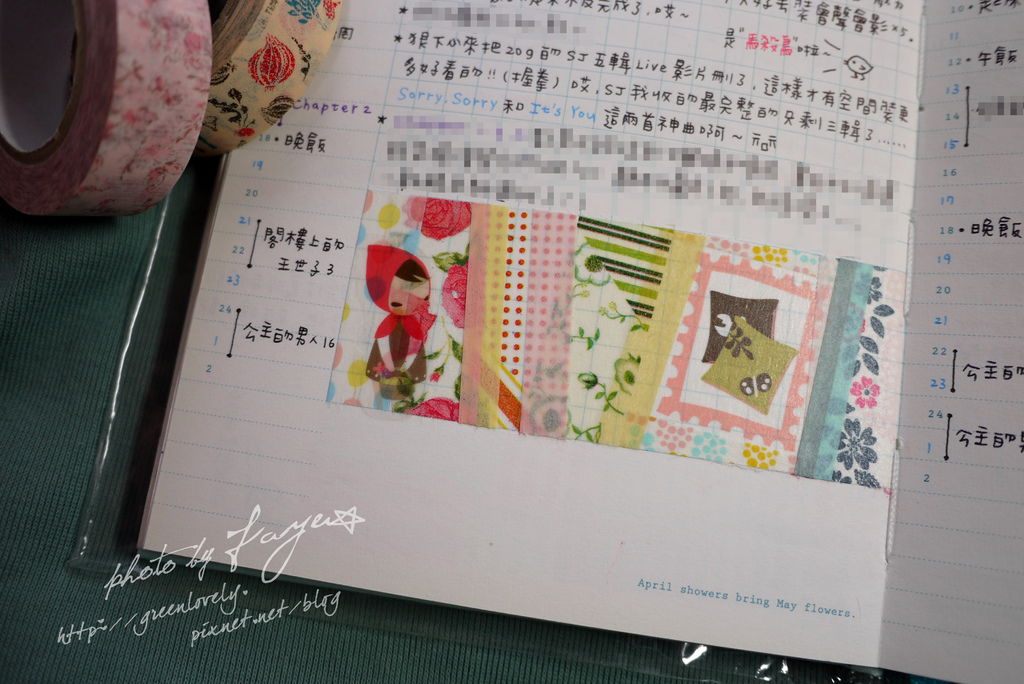 是"馬殺雞"啦
★狠下心來把20g的SJ五輯Live影片刪了,這樣才有空間裝更
多好看的!!(握拳)哎,SJ我收的最完整的只剩三輯了......
Sorry.Sorry和It's You這兩首神曲啊~
Chapter 2
18•晚飯
19
20
21
閣樓上的
22
王世子3
23
24
公主的男人16
1
2
10
11
12•午飯
13
14
15
16
17
18•晚飯
19
20
21
22
公主的
23
24
公主的
1
2
April showers bring May flowers.
photo by Faye
http://greenlovely.
pixnet.net/blog